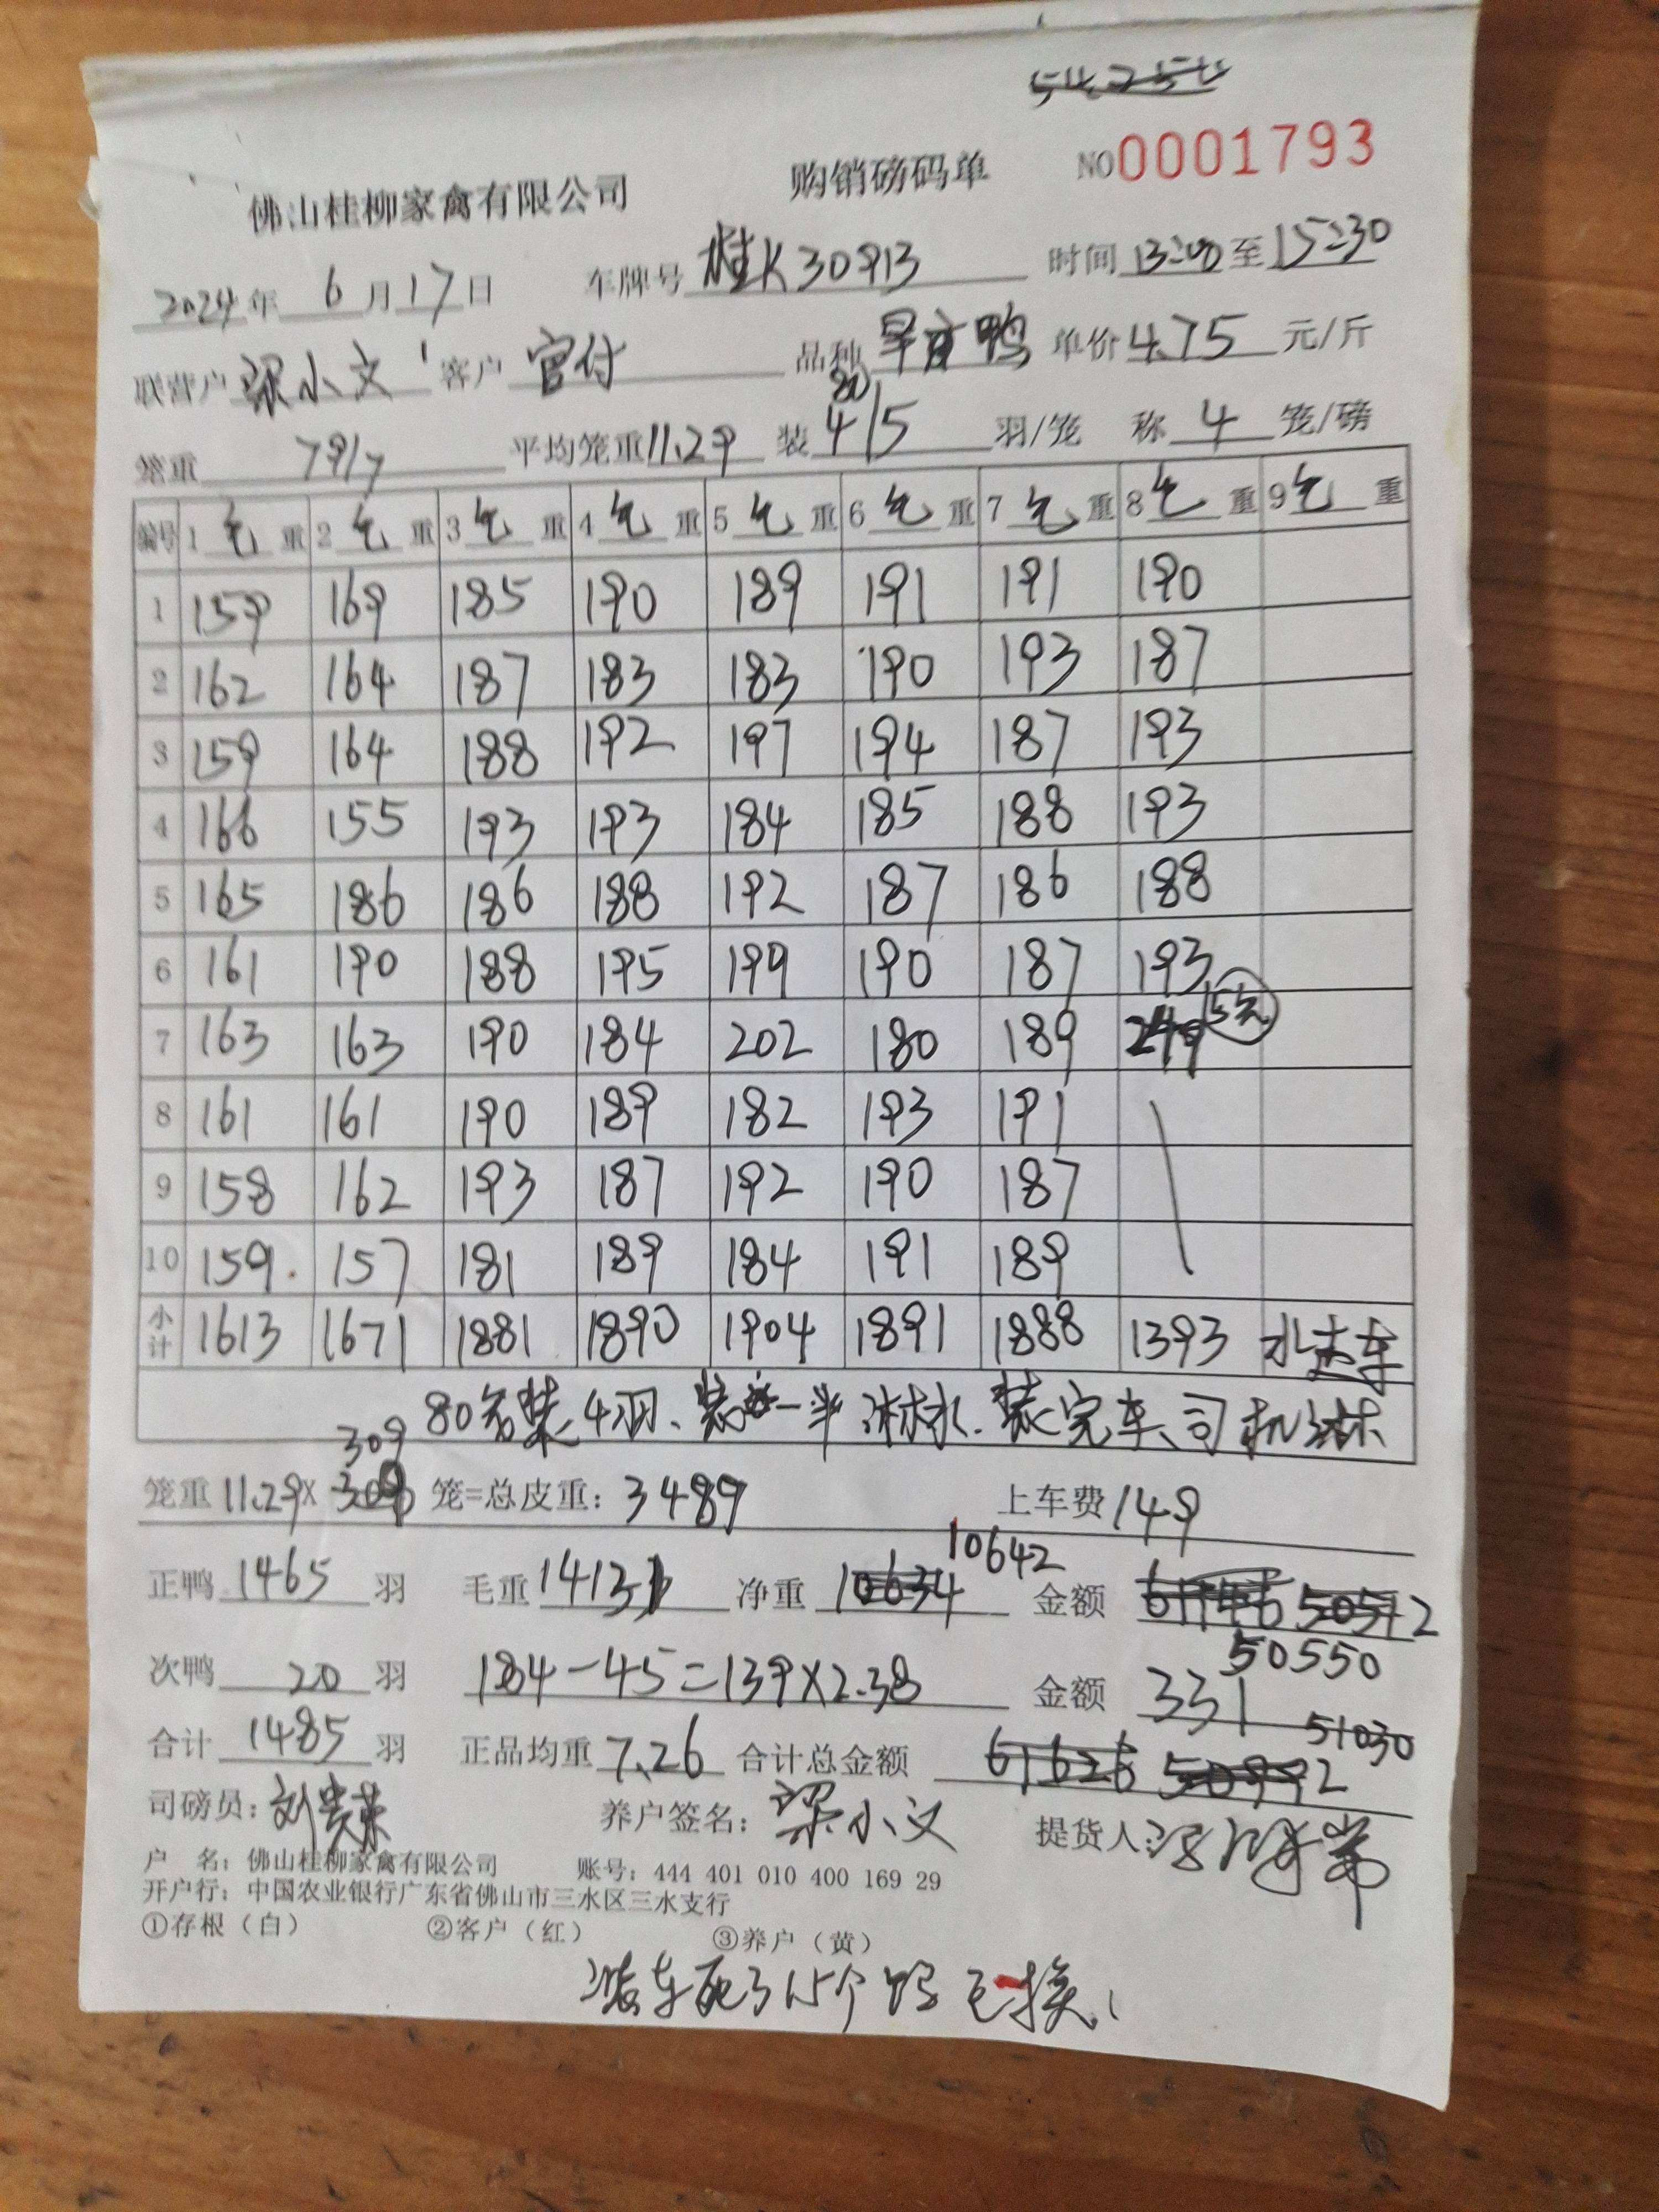 佛山桂柳家禽有限公司 购销磅码单 NO0001793
2024年 6 月 17 日 车牌号 桂K30913 时间 13:00 至 15:30
联营户 梁小文 客户 官付 品种 鸭 单价 4.75 元/斤
笼重 79/7 平均笼重 11.29 装 80 4/5 羽/笼 称 4 笼/磅
编号 1 毛 重 2 毛 重 3 毛 重 4 毛 重 5 毛 重 6 毛 重 7 毛 重 8 毛 重 9 毛 重
1 159 169 185 190 189 191 191 190
2 162 164 187 183 183 190 193 187
3 159 164 188 192 197 194 187 193
4 166 155 193 193 184 185 188 193
5 165 186 186 188 192 187 186 188
6 161 190 188 195 199 190 187 193
7 163 163 190 184 202 180 189 249 5笼
8 161 161 190 189 182 193 191
9 158 162 193 187 192 190 187
10 159 157 181 189 184 191 189
小计 1613 1671 1881 1890 1904 1891 1888 1393 水车
80笼装4羽、装一半淋水、装完车、司机淋
309
笼重 11.29 X 笼=总皮重: 3489 上车费 149
正鸭 1465 羽 毛重 14131 净重 10634 10642 金额 50512
50550
次鸭 20 羽 184-45=139×2.38 金额 331
合计 1485 羽 正品均重 7.26 合计总金额 61626 50992 51030
司磅员: 刘贵荣 养户签名: 梁小文 提货人:
户 名: 佛山桂柳家禽有限公司 账号: 444 401 010 400 169 29
开户行: 中国农业银行广东省佛山市三水区三水支行
①存根(白) ②客户(红) ③养户(黄)
装车死了15个鸭 已换、